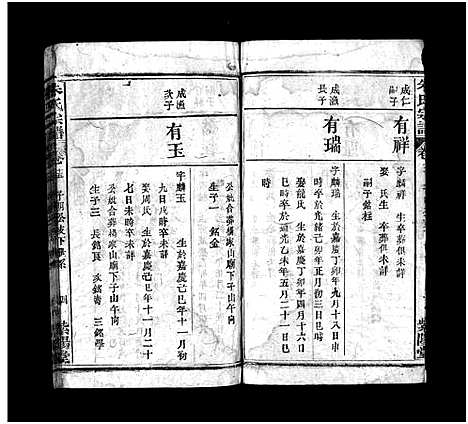 朱氏宗譜
成仁
嗣子
有祥
字麟祥 生卒葬俱未詳
娶 氏生卒葬俱未詳
嗣子銘桂
成漁
長子
有瑞
字麟瑞 生於嘉慶丁卯年九月十八日申
時卒於光緒己卯年正月初三日巳時
娶龍氏 生於嘉慶丁卯年四月十六日
巳時卒於道光乙未年五月二十一日巳
時
公妣合葬楊家山廟下子山午向
生子一 銘金
成漁
次子
有玉
字麟玉 生於嘉慶己巳年十一月初
九日戌時卒未詳
娶周氏 生於嘉慶己巳年十一月二十
七日未時卒未詳
公妣合葬楊家山廟下子山午向
生子三 長銘良 次銘壽 三銘學
朱氏宗譜
四
紫陽堂